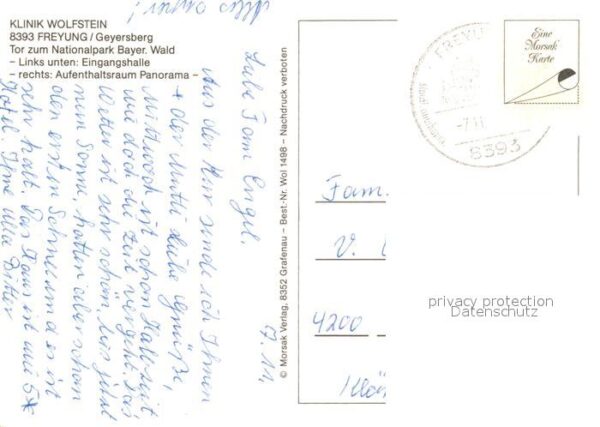 KLINIK WOLFSTEIN
8393 FREYUNG / Geyersberg
Tor zum Nationalpark Bayer. Wald
– Links unten: Eingangshalle
– rechts: Aufenthaltsraum Panorama –
Alles
Liebe Fam. Engel.
Aus der Kur sende ich Ihnen
+ der Mutti liebe Grüße,
Mittwoch ist schon Halbzeit
wie doch die Zeit vergeht. Das
Wetter ist sehr schön, bis jetzt
nur Sonne, hatten aber schon
den ersten Schnee und es ist
sehr kalt. Das Haus ist wie 5*
Hotel. Ihre
7.11.
© Morsak Verlag, 8352 Grafenau – Best.-Nr. Wol 1498 – Nachdruck verboten
FREYU
-7.11
8393
Eine
Morsak
Karte
Fam.
V.
4200
privacy protection
Datenschutz